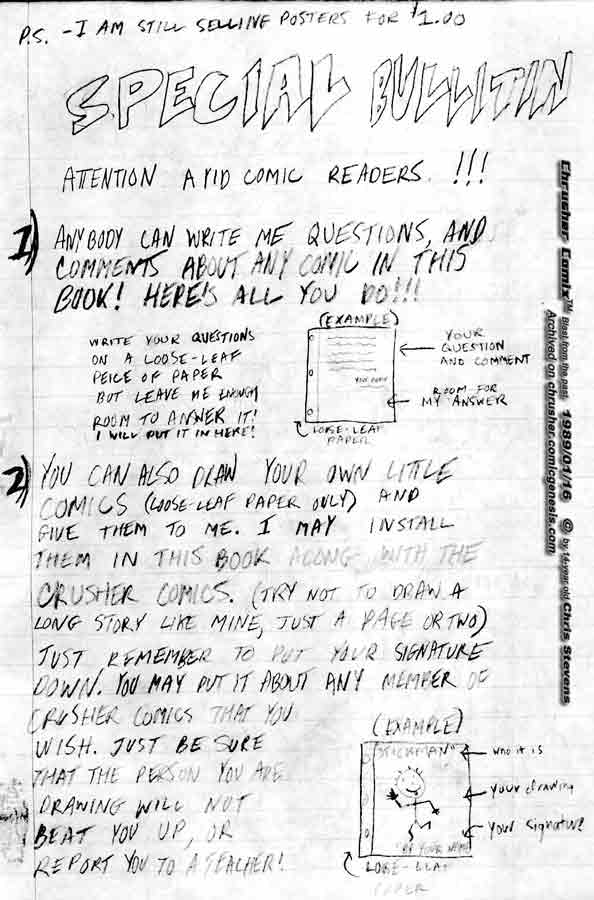 P.S. - I AM STILL SELLING POSTERS FOR $1.00
SPECIAL BULLITIN
ATTENTION AVID COMIC READERS. !!!
1) ANYBODY CAN WRITE ME QUESTIONS, AND
COMMENTS ABOUT ANY COMIC IN THIS
BOOK! HERE'S ALL YOU DO!!!
WRITE YOUR QUESTIONS
ON A LOOSE-LEAF
PEICE OF PAPER
BUT LEAVE ME ENOUGH
ROOM TO ANSWER IT!
I WILL PUT IT IN HERE!
(EXAMPLE)
YOUR NAME
YOUR
QUESTION
AND COMMENT
ROOM FOR
MY ANSWER
LOOSE-LEAF
PAPER
2) YOU CAN ALSO DRAW YOUR OWN LITTLE
COMICS (LOOSE-LEAF PAPER ONLY) AND
GIVE THEM TO ME. I MAY INSTALL
THEM IN THIS BOOK ALONG WITH THE
CRUSHER COMICS. (TRY NOT TO DRAW A
LONG STORY LIKE MINE, JUST A PAGE OR TWO)
JUST REMEMBER TO PUT YOUR SIGNATURE
DOWN. YOU MAY PUT IT ABOUT ANY MEMBER OF
CRUSHER COMICS THAT YOU
WISH. JUST BE SURE
THAT THE PERSON YOU ARE
DRAWING WILL NOT
BEAT YOU UP, OR
REPORT YOU TO A TEACHER!
(EXAMPLE)
"STICKMAN"
BY YOUR NAME
who it is
your drawing
your signature
LOOSE-LEAF
PAPER
Chrusher Comix™ Blast from the past 1989/01/16 © by 14-year-old Chris Stevens
Archived on chrusher.comicgenesis.com